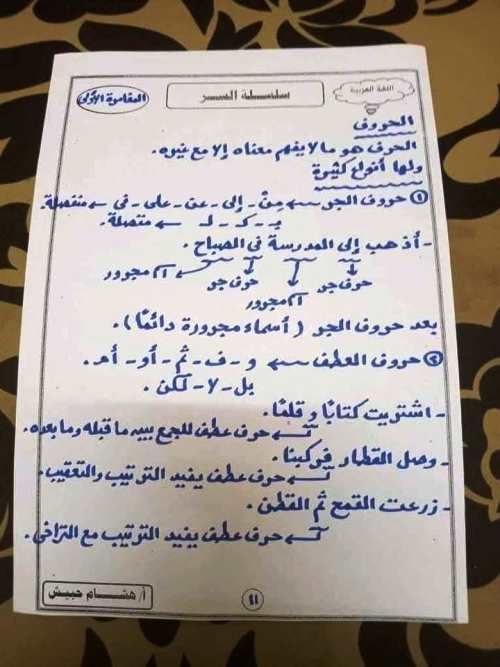 اللغة العربية
سلسلة السر
المقاومة الأولى
الحروف
الحرف هو ما لا يفهم معناه إلا مع غيره.
ولها أنواع كثيرة
① حروف الجر ← مِنْ - إلى - عن - على - في ← منفصلة.
بـ - كـ - لـ ← متصلة.
- أذهب إلى المدرسة في الصباح.
حرف جر اسم مجرور حرف جر اسم مجرور
بعد حروف الجر (أسماء مجرورة دائمًا).
② حروف العطف ← و - ف - ثم - أو - أم.
بل - لا - لكن.
- اشتريت كتابًا وقلمًا.
← حرف عطف للجمع بين ما قبله وما بعده.
- وصل القطار فركبنا.
← حرف عطف يفيد الترتيب والتعقيب.
- زرعت القمح ثم القطن.
← حرف عطف يفيد الترتيب مع التراخى.
١١
أ/ هشام حبيش